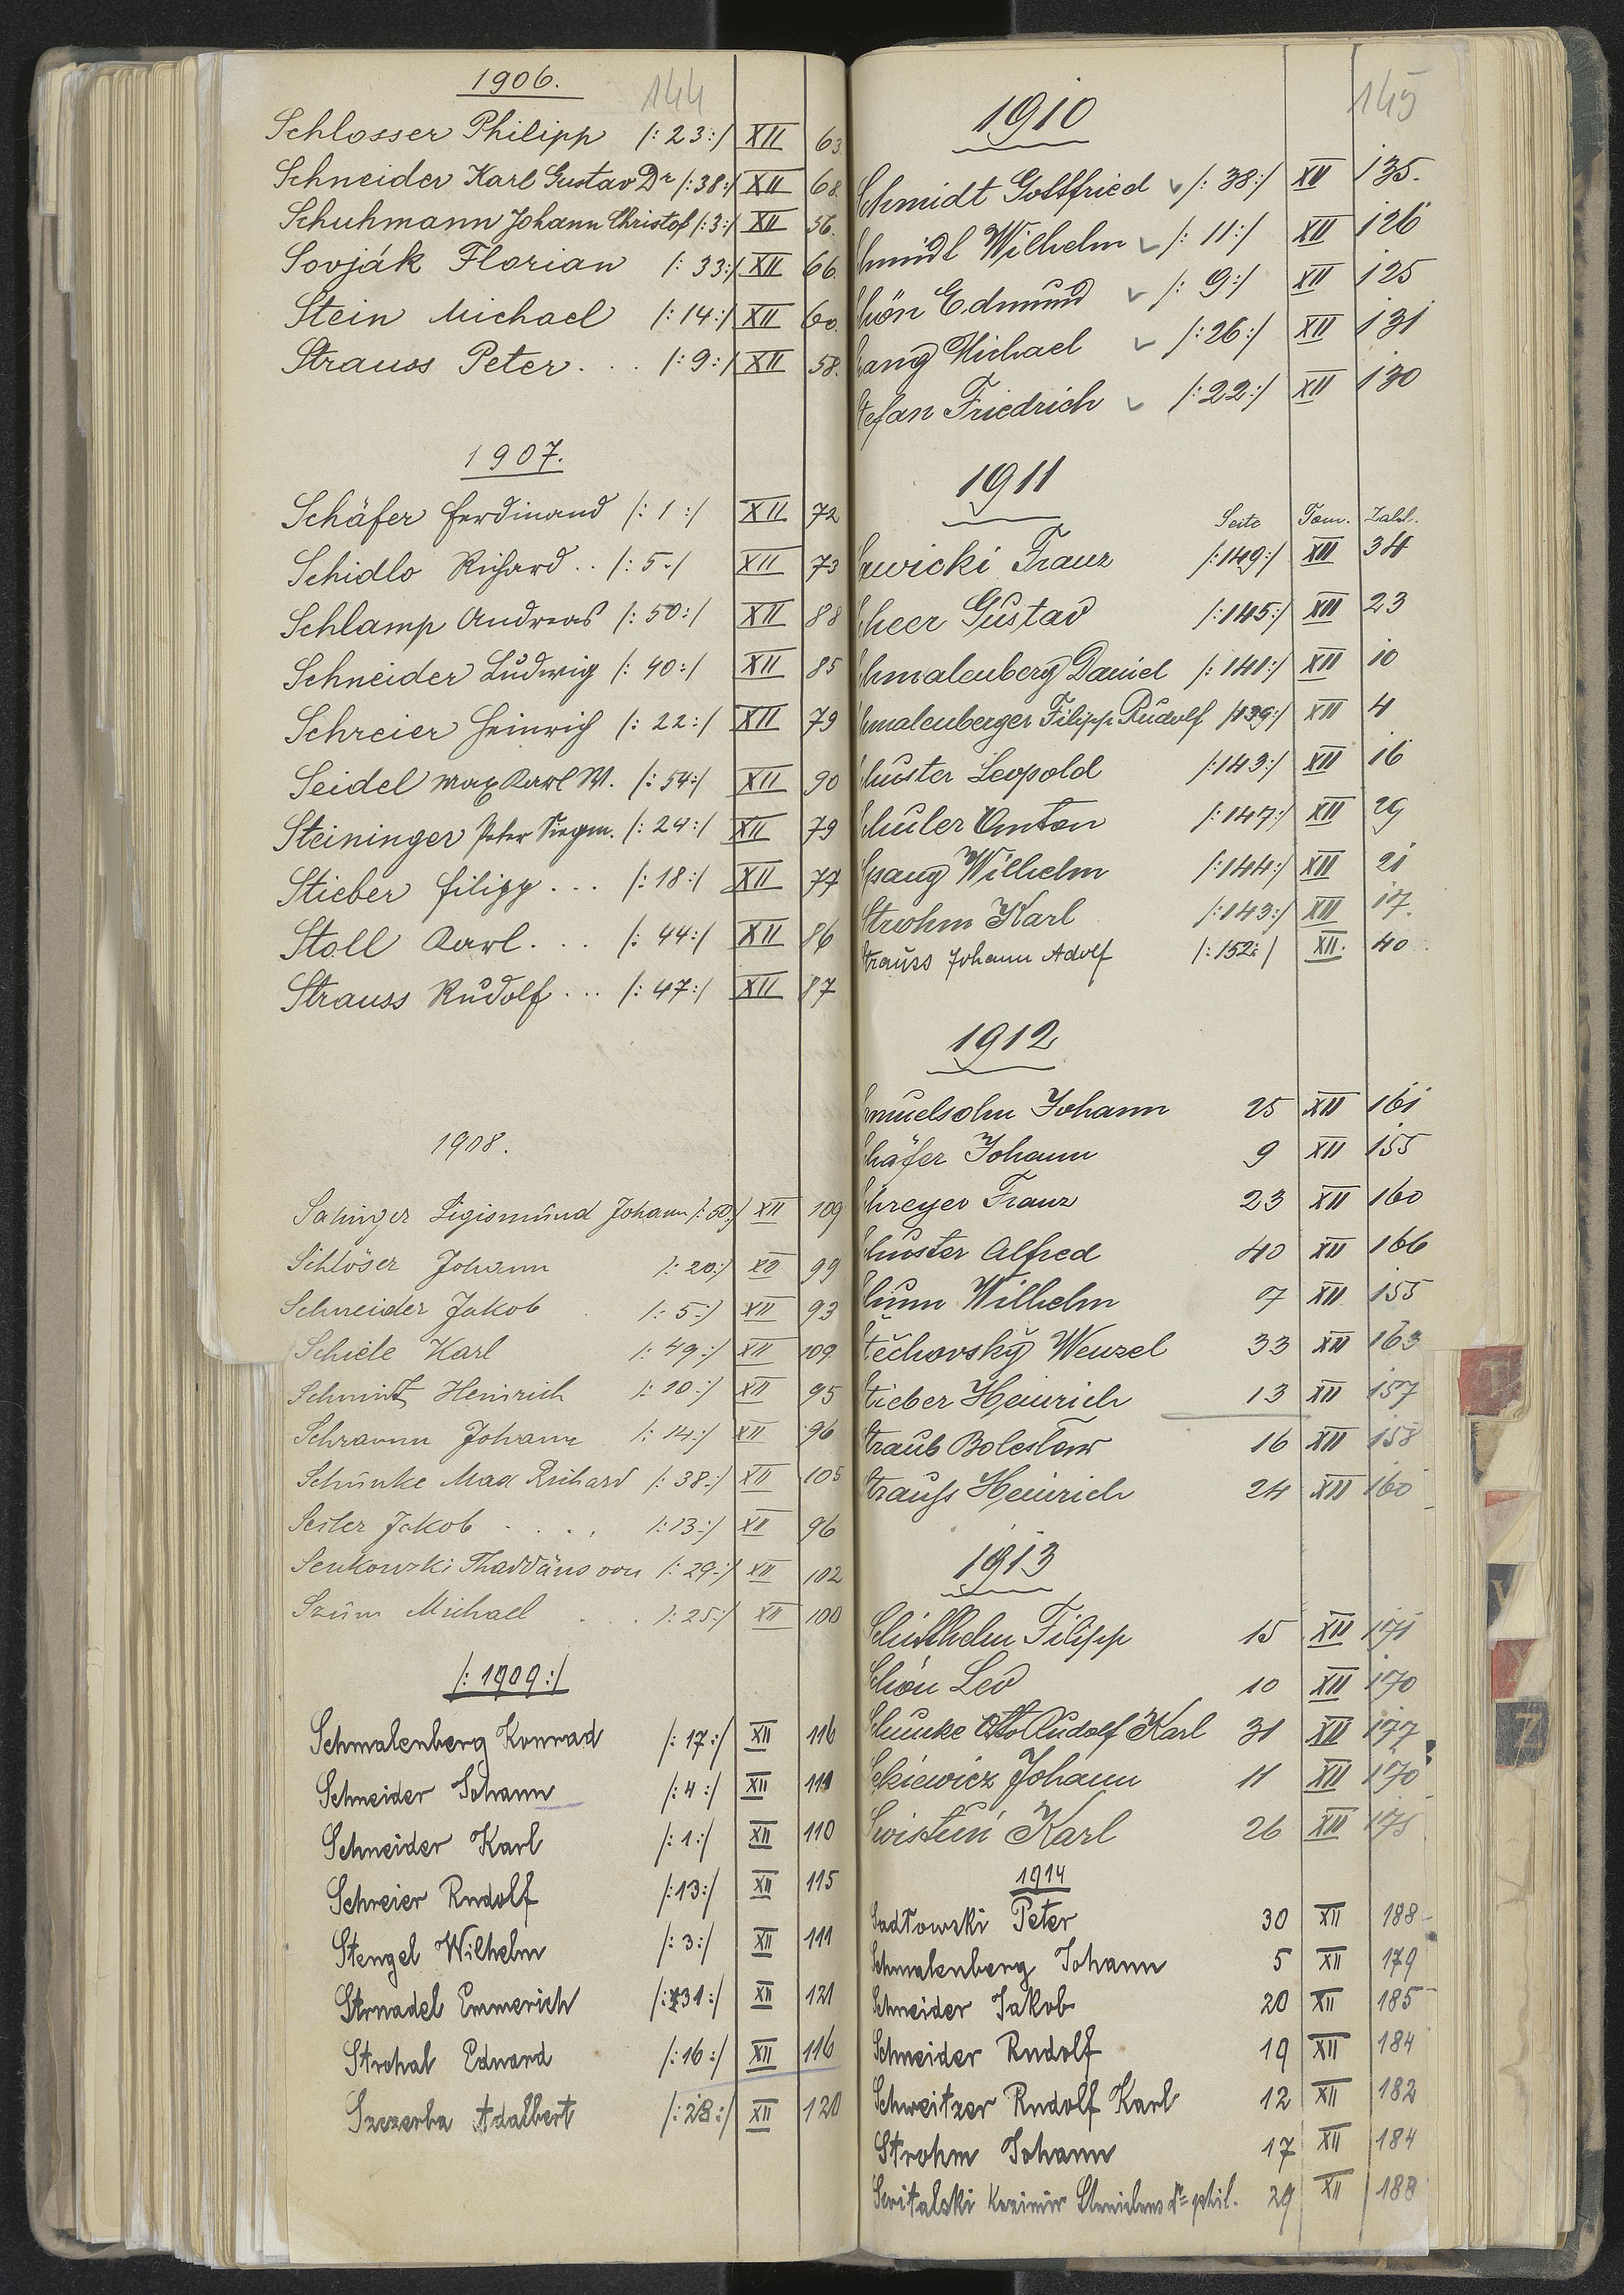 1906. 144
Schlosser Philipp /: 23 :/ XII 63.
Schneider Karl Gustav Dr /: 38 :/ XII 68.
Schuhmann Johann Christof /: 3 :/ XII 56.
Sovják Florian /: 33 :/ XII 66.
Stein Michael /: 14 :/ XII 60.
Strauss Peter . . . /: 9 :/ XII 58.
1907.
Schäfer Ferdinand /: 1 :/ XII 72
Schidlo Richard . . /: 5 :/ XII 73
Schlamp Andreas /: 50 :/ XII 88
Schneider Ludwig /: 40 :/ XII 85
Schreier Heinrich /: 22 :/ XII 79
Seidel Max Karl W. /: 54 :/ XII 90
Steininger Peter Siegm. /: 24 :/ XII 79
Stieber Filipp . . . /: 18 :/ XII 77
Stoll Karl . . . /: 44 :/ XII 86
Strauss Rudolf . . . /: 47 :/ XII 87
1908.
Sigismund Johann /: 50 :/ XII 109
Schlöser Johann /: 20 :/ XII 99
Schneider Jakob /: 5 :/ XII 93
Schiele Karl /: 49 :/ XII 109
Schmidt Heinrich /: 10 :/ XII 95
Schramm Johann /: 14 :/ XII 96
Schünke Max Richard /: 38 :/ XII 105
Seiler Jakob . . . . /: 13 :/ XII 96
Senkowski Thaddäus von /: 29 :/ XII 102
Szüm Michael . . . /: 25 :/ XII 100
/: 1909 :/
Schmalenberg Konrad /: 17 :/ XII 116
Schneider Johann /: 4 :/ XII 111
Schneider Karl /: 1 :/ XII 110
Schreier Rudolf /: 13 :/ XII 115
Stengel Wilhelm /: 3 :/ XII 111
Strnadel Emmerich /: 31 :/ XII 121
Strohal Eduard /: 16 :/ XII 116
Szczerba Adalbert /: 28 :/ XII 120
145
1910
Schmidt Gottfried /: 38 :/ XII 135.
hmidt Wilhelm /: 11 :/ XII 126
hön Edmund /: 9 :/ XII 125
ang Michael /: 26 :/ XII 131
tefan Friedrich /: 22 :/ XII 130
1911
Seite Tom. Zahl.
awicki Franz /: 149 :/ XIII 34
heer Gustav /: 145 :/ XIII 23
hmalenberg Daniel /: 141 :/ XIII 10
hmalenberger Filipp Rudolf /: 139 :/ XIII 4
huster Leopold /: 143 :/ XIII 16
chuler Anton /: 147 :/ XIII 29
Spang Wilhelm /: 144 :/ XIII 21
Strohm Karl /: 143 :/ XIII 17.
trauss Johann Adolf /: 152 :/ XII. 40
1912
amuelsohn Johann 25 XII 161
chäfer Johann 9 XII 155
chreyer Franz 23 XII 160
chuster Alfred 40 XII 166
Wilhelm 7 XII 155
těchovský Wenzel 33 XII 163
tieber Heinrich 13 XII 157
traub Bolesław 16 XII 158
trauss Heinrich 24 XII 160
1913
Filipp 15 XII 171
Schön Leo 10 XII 170
Schunke Otto Rudolf Karl 31 XII 177
ekiewicz Johann 11 XII 170
Swistuń Karl 26 XII 175
1914
Sadłowski Peter 30 XII 188
Schmalenberg Johann 5 XII 179
Schneider Jakob 20 XII 185
Schneider Rudolf 19 XII 184
Schweitzer Rudolf Karl 12 XII 182
Strohm Johann 17 XII 184
Switalski Kazimir dr phil. 29 XII 188
Z